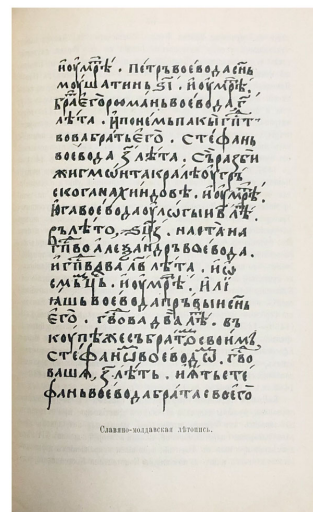 и҆ѹмрѣ̀ . петръ воевода сн҃ь
моушатинь ѕ҃і . и҆ ѹмрѣ̀ .
бра҆ е҆го романь воевода г҃
лѣта . и҆ понемь пакы гп҃т
вова брать е҆го . стефань
воевода з҃ лѣта . съразби
жигмѡнта кралѣ ѹгръ
скога на хиндовѣ . и҆ ѹмрѣ̀ .
юга воевода
лѣто , наста на
гп҃во алеѯандръ воевода .
и҆ гп҃вова лв҃ лѣта . и҆ ѡ
мць . и҆ ѹмрѣ . и҆лї
ꙗшь воевода пръвы сн҃ь
е҆го . гв҃ова двѣ лѣ . въ
коупѣже съ братѡ своимь ,
стефанѡ воеводѡ . гв҃о
ваша , з҃ лѣть . и҆ ѧть сте
фань воевода брата своего
Славяно-молдавская лѣтопись.